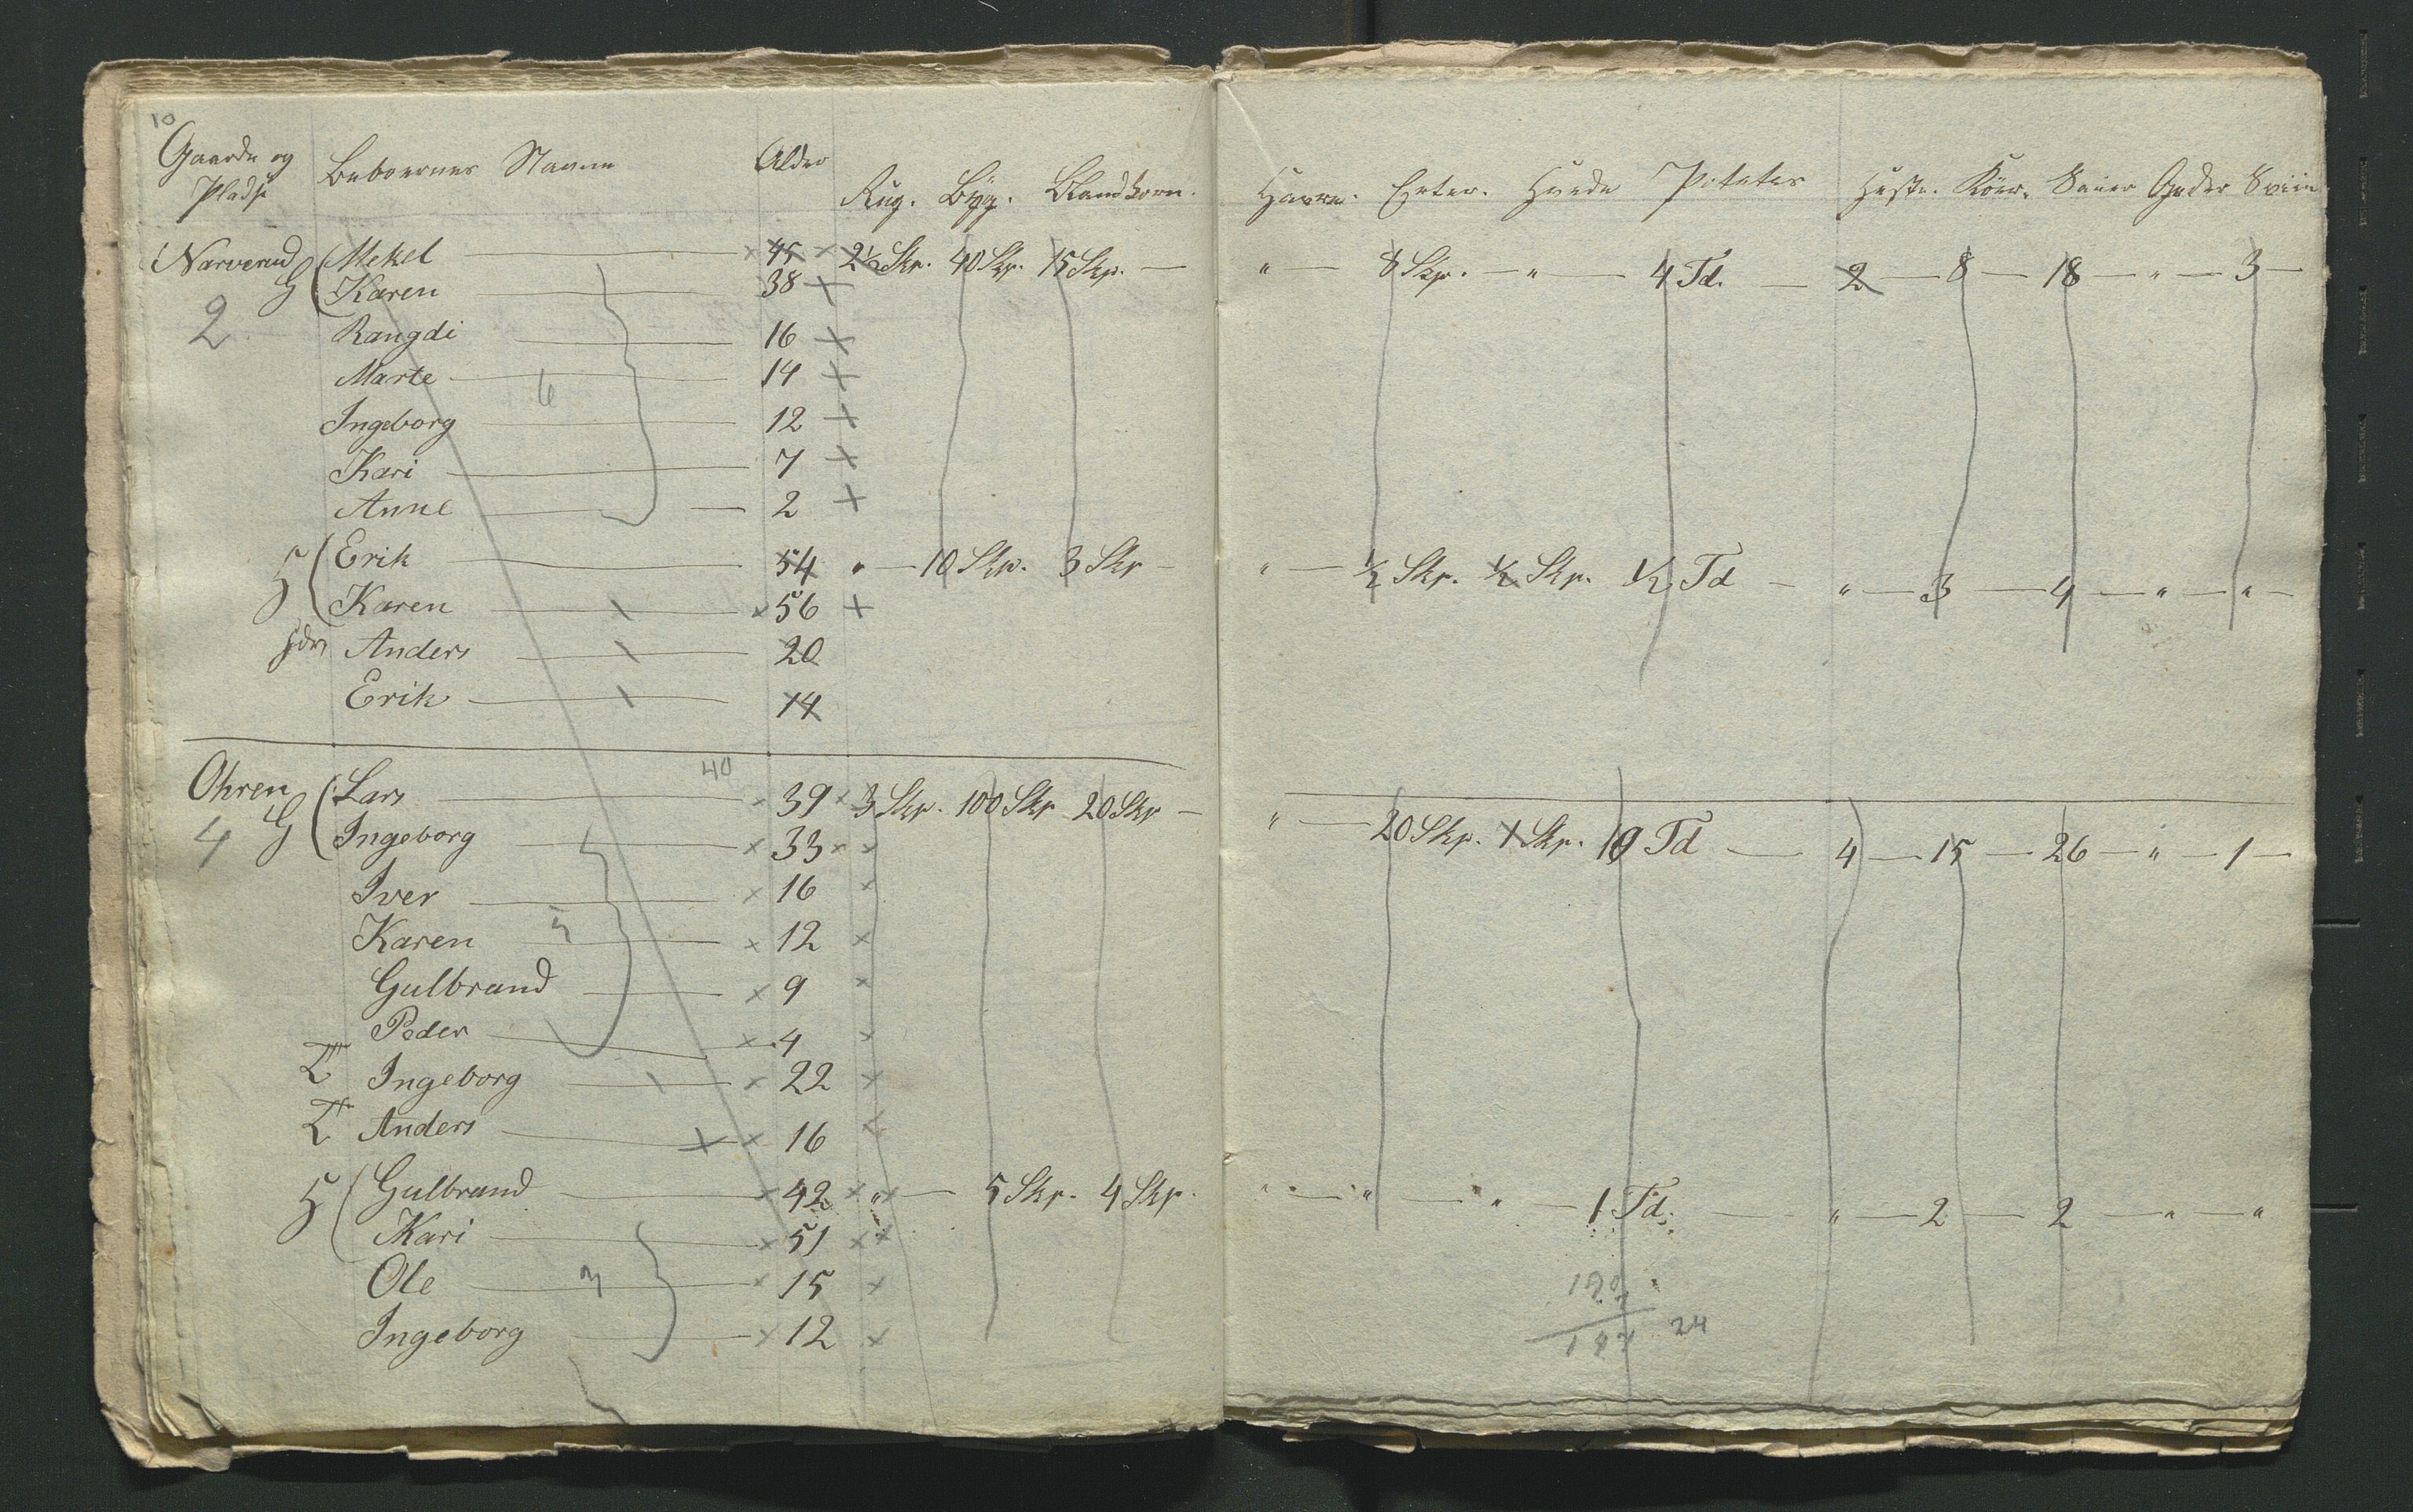 10
Gaarde og Beboernes Navne Alder Rug. Byg. Blandkorn. Havre. Erter. Hvede Potetes Heste. Köer. Sauer Geder Sviin
Pladse
Narverud G Mekel 45 2½ Skp. 40 Skp. 15 Skp. — " — 8 Skp. — " — 4 Td. — 2 — 8 — 18 — " — 3 —
Karen 38
2 Rangdi 16
Marte 6 14
Ingeborg 12
Kari 7
Anne 2
H Erik 54 " — 10 Skp. 3 Skp — " — ½ Skp. ½ Skp. ½ Td — " — 3 — 4 — " — " —
Karen 56
Anders 20
Erik 14
40
Ohren G Lars 39 3 Skp. 100 Skp 20 Skp — " — 20 Skp. 1 Skp. 10 Td — 4 — 15 — 26 — " — 1 —
4 Ingeborg 33
Iver 16
Karen 5 12
Gulbrand 9
Peder 4
T Ingeborg 22
T Anders 16
H Gulbrand 42 " — 5 Skp. 4 Skp. " — " — " — 1 Td. — " — 2 — 2 — " — "
Kari 51
Ole 3 15
Ingeborg 12
24